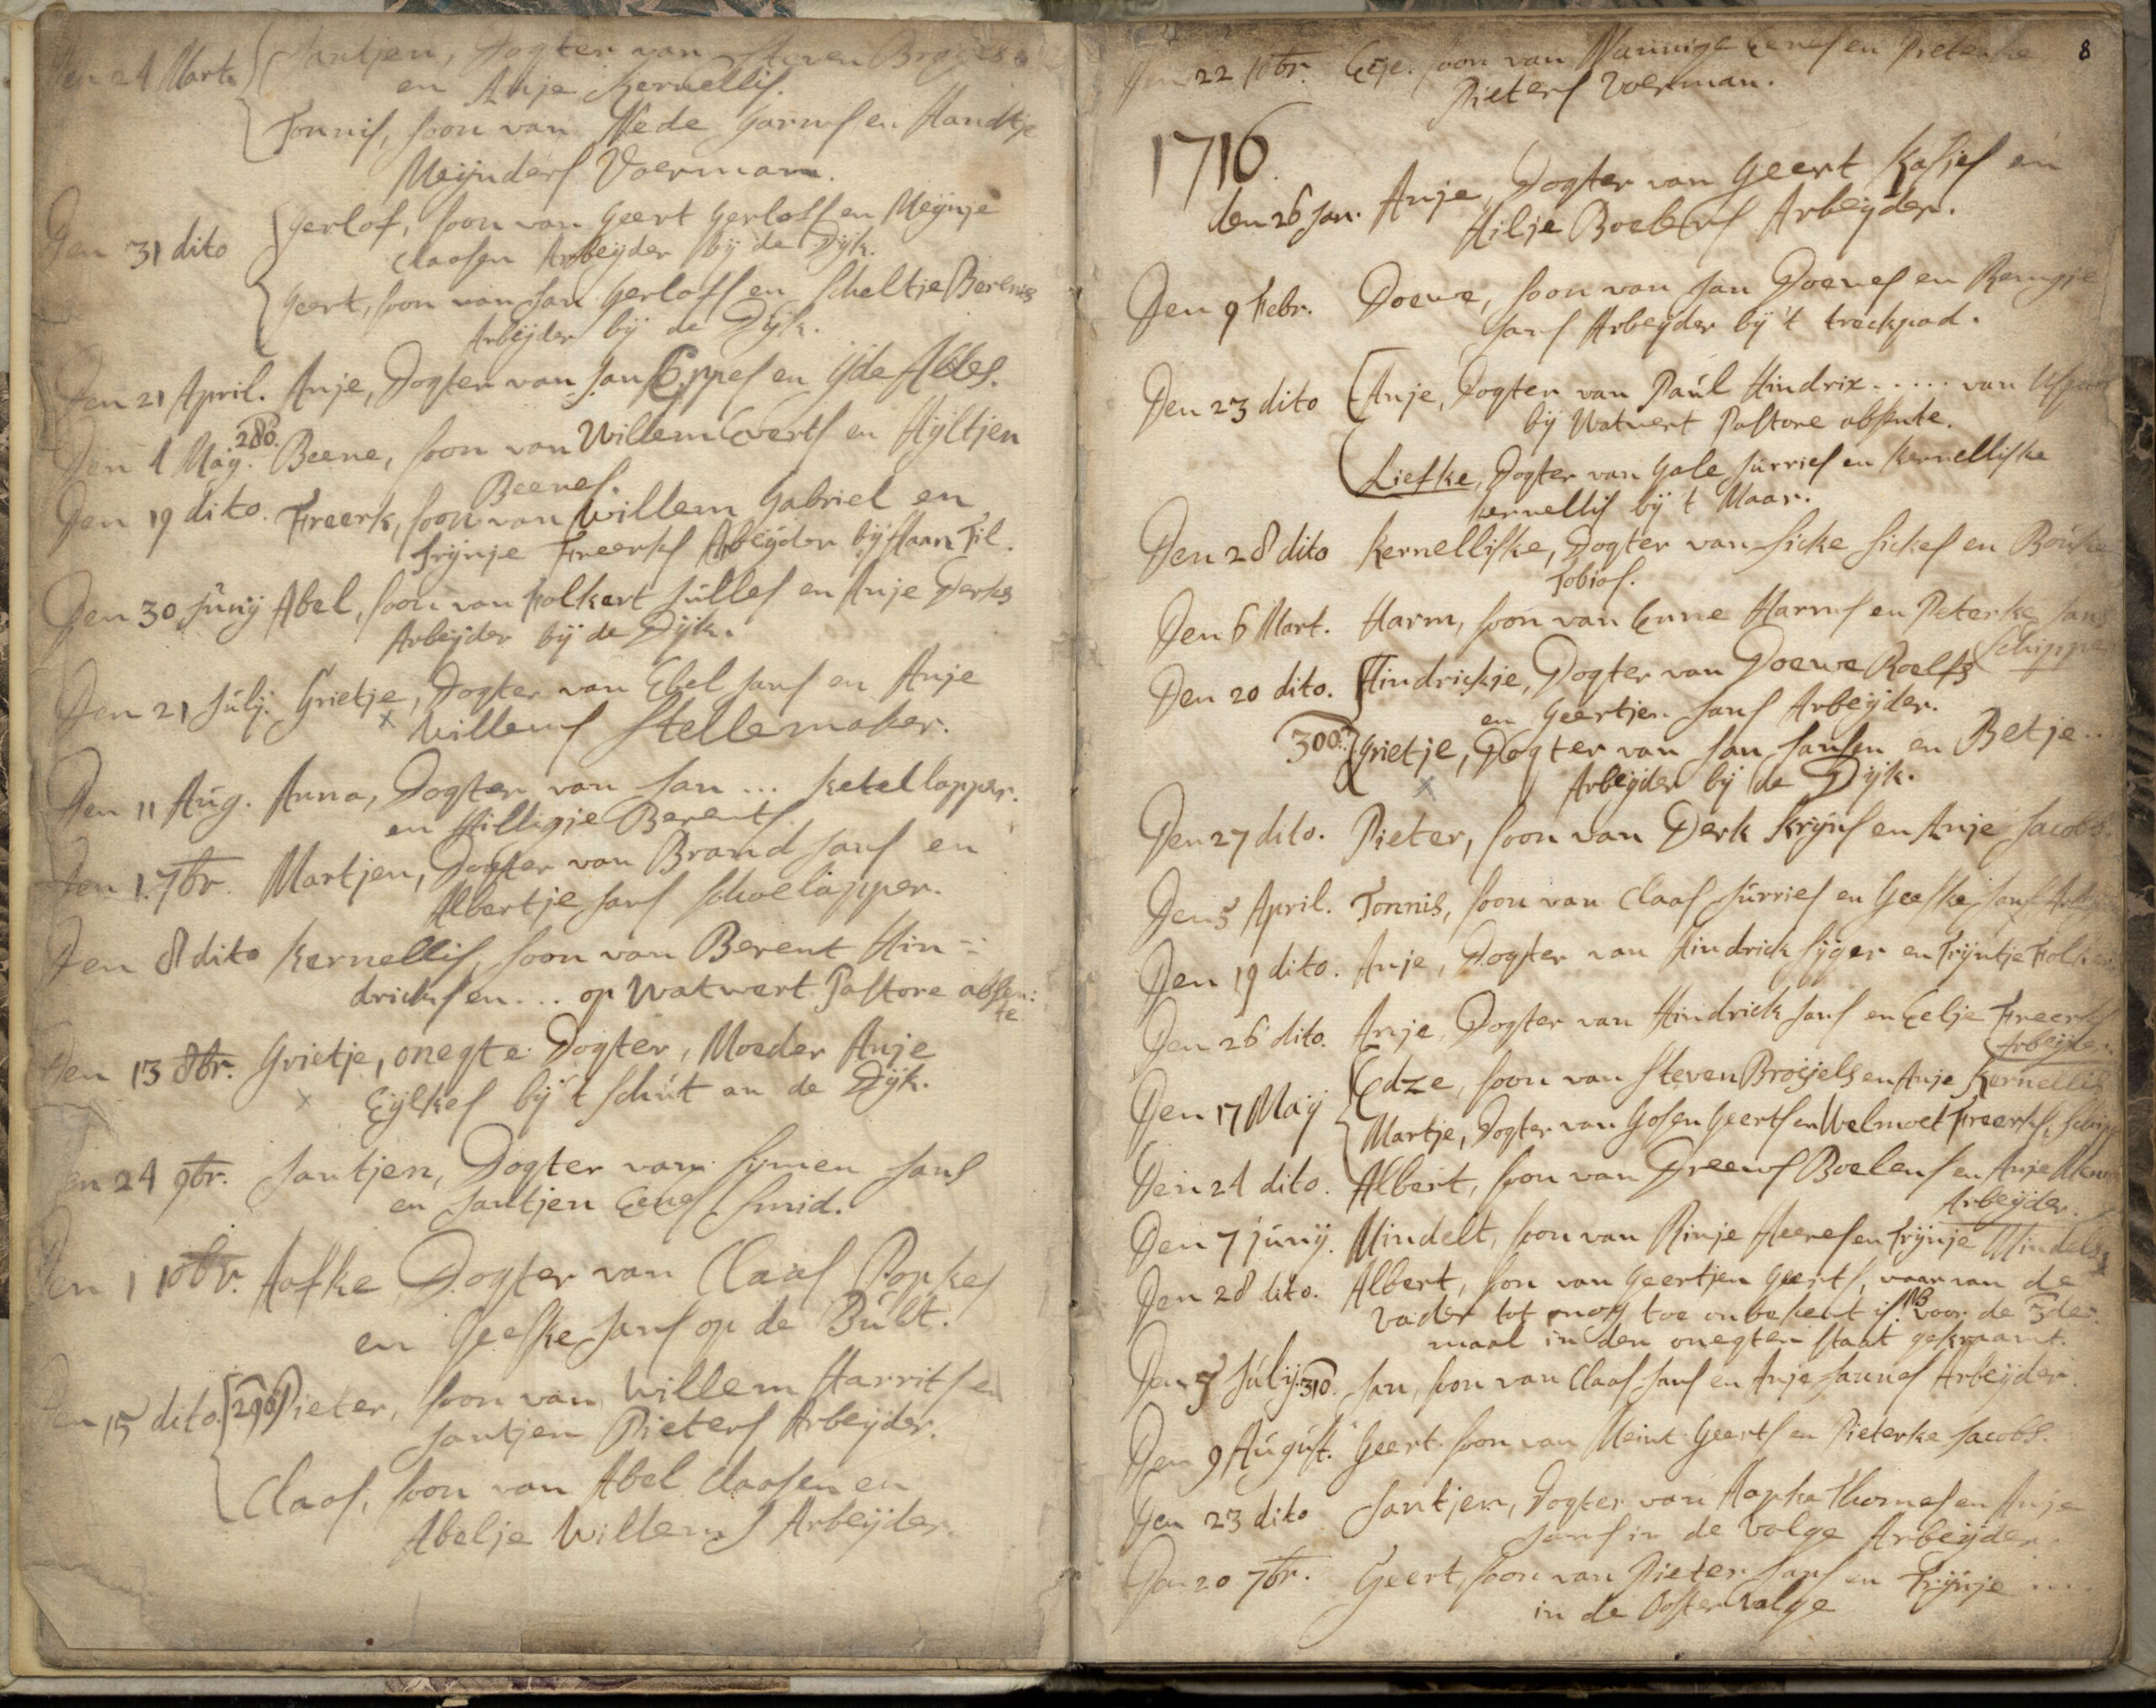 Den 24 Mart. Jantjen, Dogter van Steven
en Anje Kernellis.
Tonnis, soon van Nede Harms en Handtje
Meijnders Voerman.
Den 31 dito Gerlof, soon van Geert Gerlofs en Meijnje
Claasen Arbeijder bij de Dijk.
Geert, soon van Jan Gerlofs en Scheltje Berents
Arbeijder bij de Dijk.
Den 21 April. Anje, Dogter van Jan Eppes en ijde Abbes.
Den 1 Maij. 280. Beene, soon van Willem Everts en Hijltjen
Beenes.
Den 19 dito. Freerk, soon van Willem Gabriel en
Trijnje Freerks Arbeijder bij Haan Til.
Den 30 Junij Abel, soon van Folkert Julles en Anje Derks
Arbeijder bij de Dijk.
Den 21 Julij. Grietje, Dogter van Ebel Jans en Anje
x Willems Stellemaker.
Den 11 Aug. Anna, Dogter van Jan ... Ketellapper.
en Hilligje Berents.
Den 1. 7br. Martjen, Dogter van Brand Jans en
Albertje Jans Schoelapper.
Den 8 dito Kernellis, soon van Berent Hin-
dricks en ... op Watwert Pastore absen:
te
Den 13 8br. Grietje, onegte Dogter, Moeder Anje
x Eijlkes bij 't schut an de Dijk.
Den 24 9br. Jantjen, Dogter van Sijmen Jans
en Jantjen Eenes Smid.
Den 1 10br. Aafke Dogter van Claas Popkes
en Geeske Jans op de Bult.
Den 15 dito. 290 Pieter, soon van Willem Harrits en
Jantjen Pieters Arbeijder.
Claas, soon van Abel Claasen en
Abelje Willems Arbeijder.
8
Den 22 10br. soon van en Pieterke
Pieters Voerman.
1716.
den 26 Jan. Anje, Dogter van Geert en
Hilje Boelens Arbeijder.
Den 9 Febr. Doewe, soon van Jan Doewes en Remgje
Jans Arbeijder bij 't treckpad.
Den 23 dito Anje, Dogter van Paul Hindrix ..... van
bij Watwert Pastore absente.
Liefke, Dogter van Gale Jurries en Kernelliske
Kernellis bij 't Maar.
Den 28 dito Kernelliske, Dogter van Sicke Sickes en
Tobias.
Den 6 Mart. Harm, soon van Enne Harms en Peterke Jans
Schipper
Den 20 dito. Hindrickje, Dogter van Doewe Roelfs
en Geertjen Jans Arbeijder.
300. Grietje, Dogter van Jan Jansen en Betje ..
x Arbeijder bij de Dijk.
Den 27 dito. Pieter, soon van Derk Krijns en Anje Jacobs.
Den 5 April. Tonnis, soon van Claas Jurries en Geeske Jans
Den 19 dito. Anje, Dogter van Hindrick Sijger en Trijntje
Den 26 dito. Anje, Dogter van Hindrick Jans en Eelje Freerks
Arbeijder.
Den 17 Maij Edze, soon van Steven Broijels en Anje Kernellis
Martje, Dogter van Gosen Geerts en Welmoet Freerks,
Den 24 dito. Albert, soon van Dreews Boelens en Anje
Arbeijder.
Den 7 junij. Mindelt, soon van Rinje Heeres en Trijnje Mindels
Den 28 dito. Albert, son van Geertjen Geerts, waar van de
vader tot nog toe onbekent is. NB voor de 3de
maal in den onegten staat gekraamt.
Den 5 Julij. 310. Jan, soon van Claas Jans en Anje Jannes Arbeijder.
Den 9 August. Geert soon van Meint Geerts en Pieterke Jacobs.
Den 23 dito Jantjen, Dogter van Hapke Thomes en Anje
Jans in de Valge Arbeijder.
Den 20 7br. Geert, soon van Pieter Jans en Trijnje ....
in de Ooster Valge